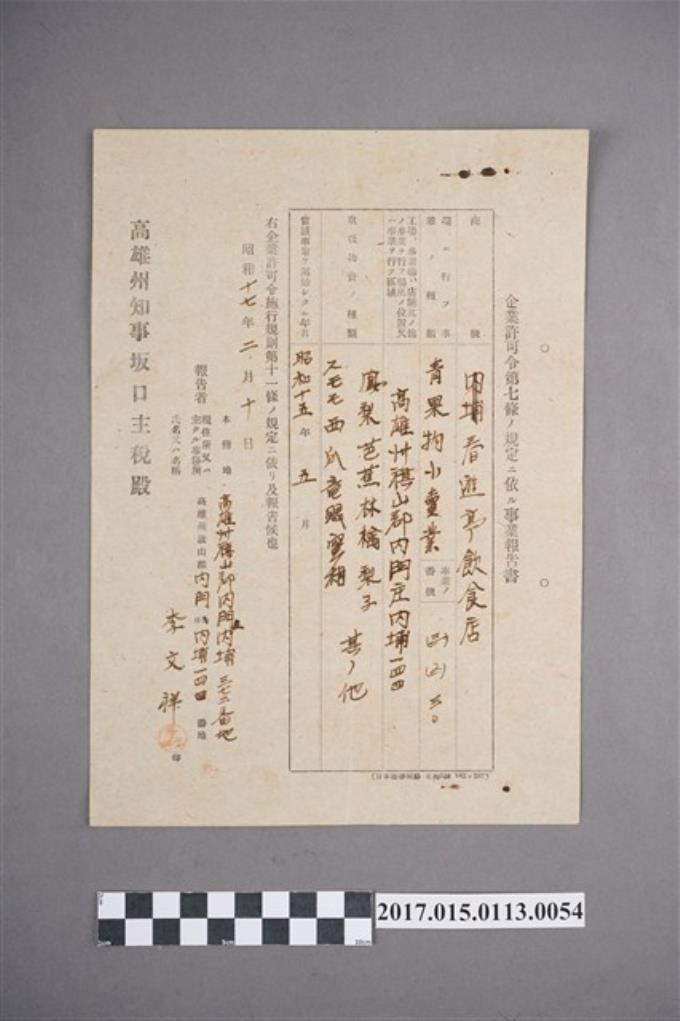 企業許可令第七條ノ規定ニ依ル事業報告書
商號
內埔春遊亭飲食店
現ニ行フ事業ノ種類
青果物小賣業
事業ノ番號
工場、事業場、店舖其ノ他ノ事業ヲ行フ場所ノ位置又ハ事業ヲ行フ區域
高雄州旗山郡內門庄內埔一四四
取扱物資ノ種類
鳳梨芭蕉林檎梨子
スモモ西瓜
其ノ他
當該事業ヲ開始シタル年月
昭和十五年五月
右企業許可令施行規則第十一條ノ規定ニ依リ及報告候也
昭和十七年二月十日
報告者
本籍地
高雄州旗山郡內門庄內埔三七二番地
現住所又ハ主タル事務所
高雄州旗山郡內門庄內埔一四四番地
氏名又ハ名稱
李文祥
印
高雄州知事坂口主稅殿
2017.015.0113.0054